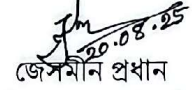 20.08.25
জেসমীন প্রধান